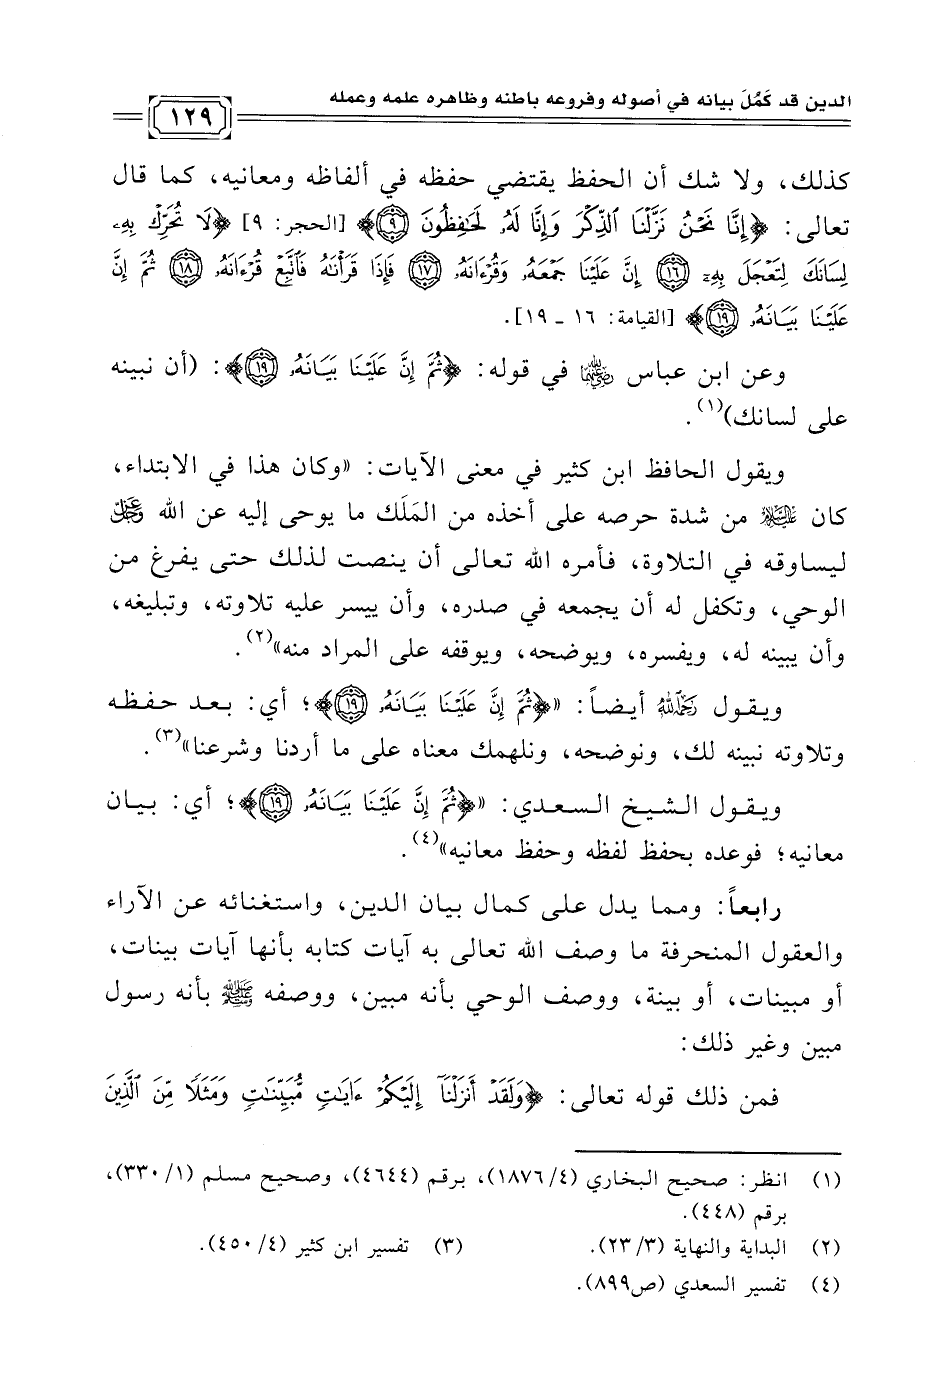 الدين قد كَمُلَ بيانه في أصوله وفروعه باطنه وظاهره علمه وعمله
١٢٩
كذلك، ولا شك أن الحفظ يقتضي حفظه في ألفاظه ومعانيه، كما قال
تعالى: ﴿إِنَّا نَحْنُ نَزَّلْنَا ٱلذِّكْرَ وَإِنَّا لَهُۥ لَحَٰفِظُونَ ٩﴾ [الحجر: ٩] ﴿لَا تُحَرِّكْ بِهِۦ
لِسَانَكَ لِتَعْجَلَ بِهِۦٓ ١٦ إِنَّ عَلَيْنَا جَمْعَهُۥ وَقُرْءَانَهُۥ ١٧ فَإِذَا قَرَأْنَٰهُ فَٱتَّبِعْ قُرْءَانَهُۥ ١٨ ثُمَّ إِنَّ
عَلَيْنَا بَيَانَهُۥ ١٩﴾ [القيامة: ١٦ - ١٩].
وعن ابن عباس رضي الله عنهما في قوله: ﴿ثُمَّ إِنَّ عَلَيْنَا بَيَانَهُۥ ١٩﴾: (أن نبينه
على لسانك)(١).
ويقول الحافظ ابن كثير في معنى الآيات: «وكان هذا في الابتداء،
كان عليه السلام من شدة حرصه على أخذه من المَلَك ما يوحى إليه عن الله عز وجل
ليساوقه في التلاوة، فأمره الله تعالى أن ينصت لذلك حتى يفرغ من
الوحي، وتكفل له أن يجمعه في صدره، وأن ييسر عليه تلاوته، وتبليغه،
وأن يبينه له، ويفسره، ويوضحه، ويوقفه على المراد منه»(٢).
ويقول رحمه الله أيضاً: «﴿ثُمَّ إِنَّ عَلَيْنَا بَيَانَهُۥ ١٩﴾؛ أي: بعد حفظه
وتلاوته نبينه لك، ونوضحه، ونلهمك معناه على ما أردنا وشرعنا»(٣).
ويقول الشيخ السعدي: «﴿ثُمَّ إِنَّ عَلَيْنَا بَيَانَهُۥ ١٩﴾؛ أي: بيان
معانيه؛ فوعده بحفظ لفظه وحفظ معانيه»(٤).
رابعاً: ومما يدل على كمال بيان الدين، واستغنائه عن الآراء
والعقول المنحرفة ما وصف الله تعالى به آيات كتابه بأنها آيات بينات،
أو مبينات، أو بينة، ووصف الوحي بأنه مبين، ووصفه ﷺ بأنه رسول
مبين وغير ذلك:
فمن ذلك قوله تعالى: ﴿وَلَقَدْ أَنزَلْنَآ إِلَيْكُمْ ءَايَٰتٍ مُّبَيِّنَٰتٍ وَمَثَلًا مِّنَ ٱلَّذِينَ
(١) انظر: صحيح البخاري (٤/ ١٨٧٦)، برقم (٤٦٤٤)، وصحيح مسلم (١/ ٣٣٠)،
برقم (٤٤٨).
(٢) البداية والنهاية (٣/ ٢٣). (٣) تفسير ابن كثير (٤/ ٤٥٠).
(٤) تفسير السعدي (ص٨٩٩).